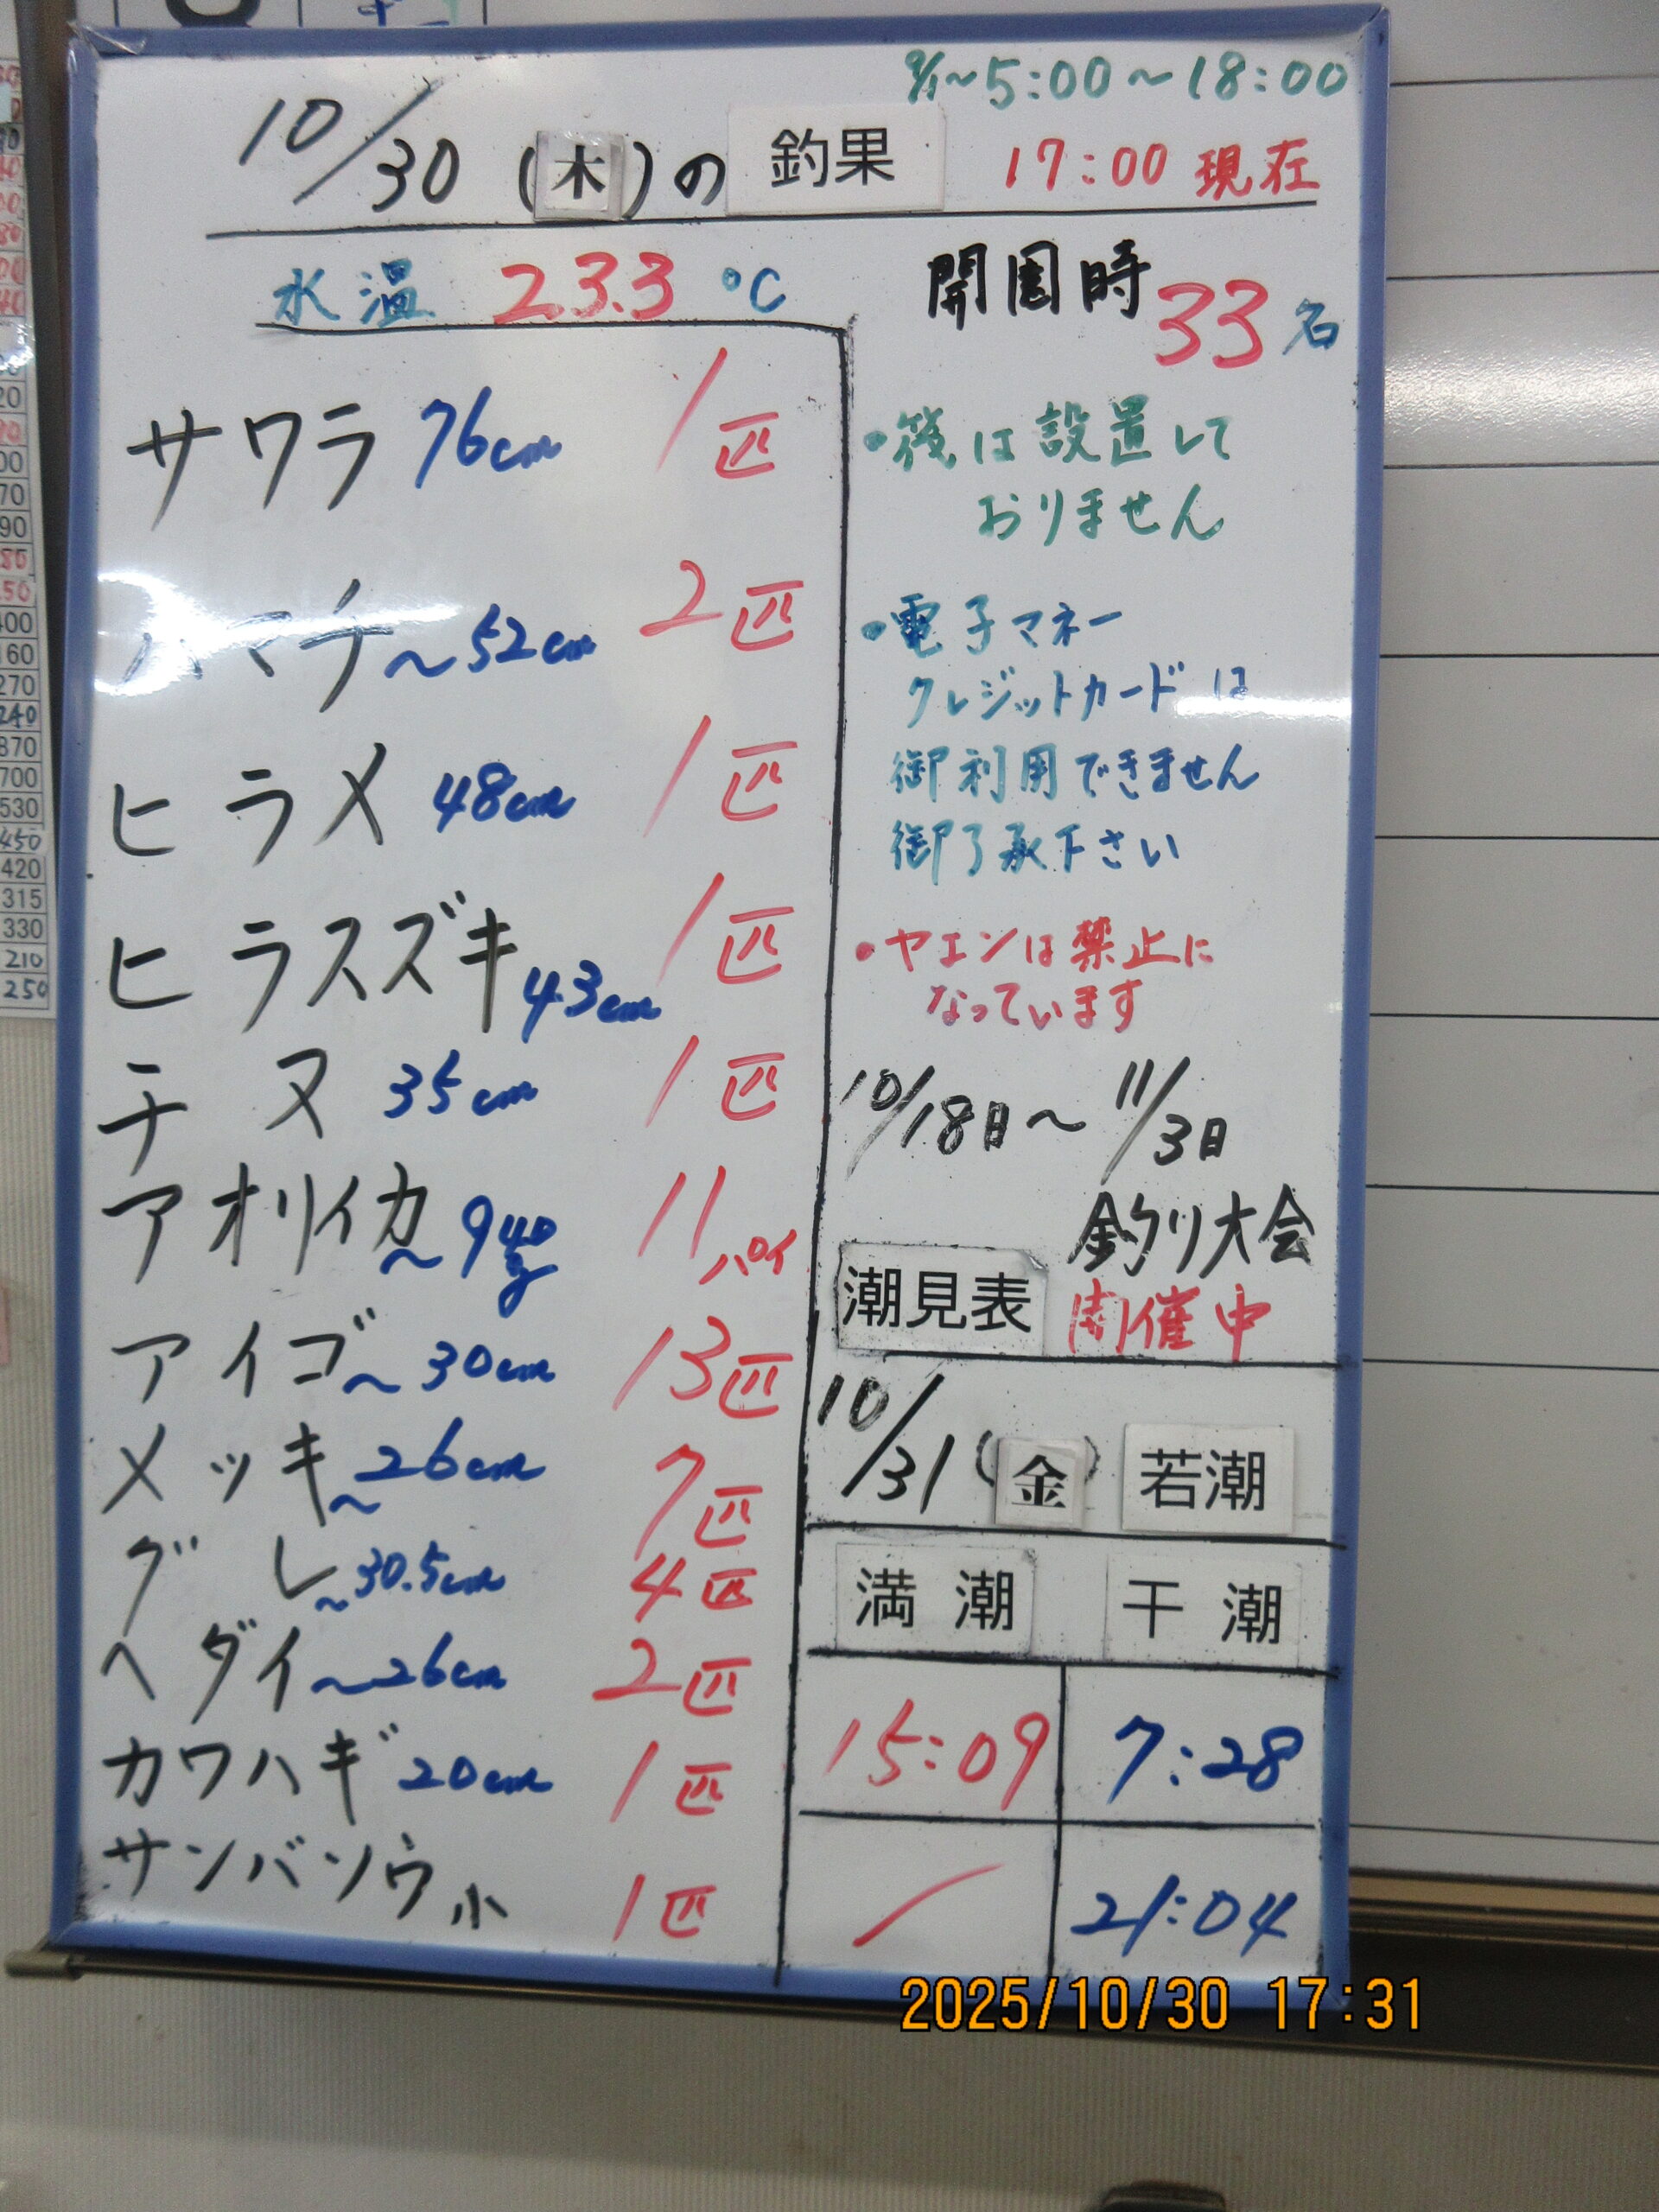 9/1～5:00～18:00
10/30(木)の釣果 17:00現在
水温 23.3℃
開園時33名
サワラ 76cm 1匹
ハマチ～52cm 2匹
ヒラメ 48cm 1匹
ヒラスズキ 43cm 1匹
チヌ 35cm 1匹
アオリイカ～940g 11パイ
アイゴ～30cm 13匹
メッキ～26cm 7匹
グレ～30.5cm 4匹
ヘダイ～26cm 2匹
カワハギ 20cm 1匹
サンバソウ 小 1匹
・筏は設置して
おりません
・電子マネー
クレジットカードは
御利用できません
御了承下さい
・ヤエンは禁止に
なっています
10/18日～11/3日
釣り大会
開催中
潮見表
10/31(金) 若潮
満潮 干潮
15:09 7:28
／ 21:04
2025/10/30 17:31